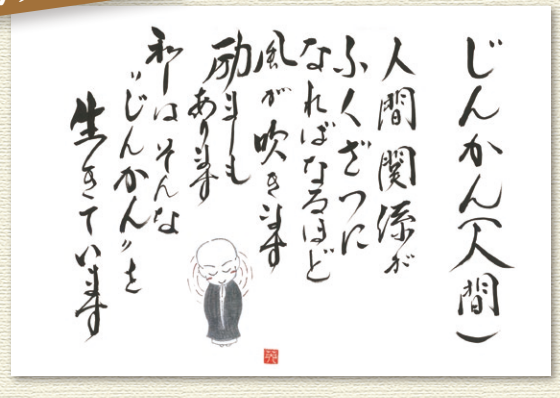 じんかん(人間)
人間関係が
ふくざつに
なればなるほど
風が吹きます
励ましも
あります
私はそんな
"じんかん"を
生きています